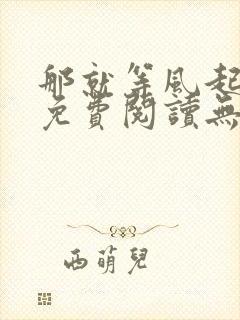 那就等風起
免費閱讀無
西萌兒